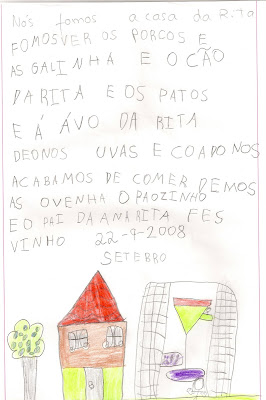 Nós fomos a casa da Rita
FOMOSVER OS PORCOS E
AS GALINHA E O CÃO
DA RITA E OS PATOS
E Á ÁVO DA RITA
DEONOS UVAS E COADONOS
ACABAMOS DE COMER DEMOS
AS OVENHA O PAOZINHO
E O PAI DA ANA RITA FES
VINHO 22-9-2008
SETEBRO